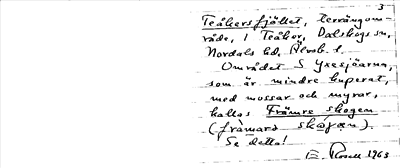 3
Teåkersfjället, terrängom-
råde, i Teåker, Dalskogs sn,
Nordals hd, Älvsb. l.
Området S Yxesjöarna,
som är mindre kuperat,
med mossar och myrar,
kallas Främre skogen
(främarə skågən).
Se detta!
E. Rosell 1963